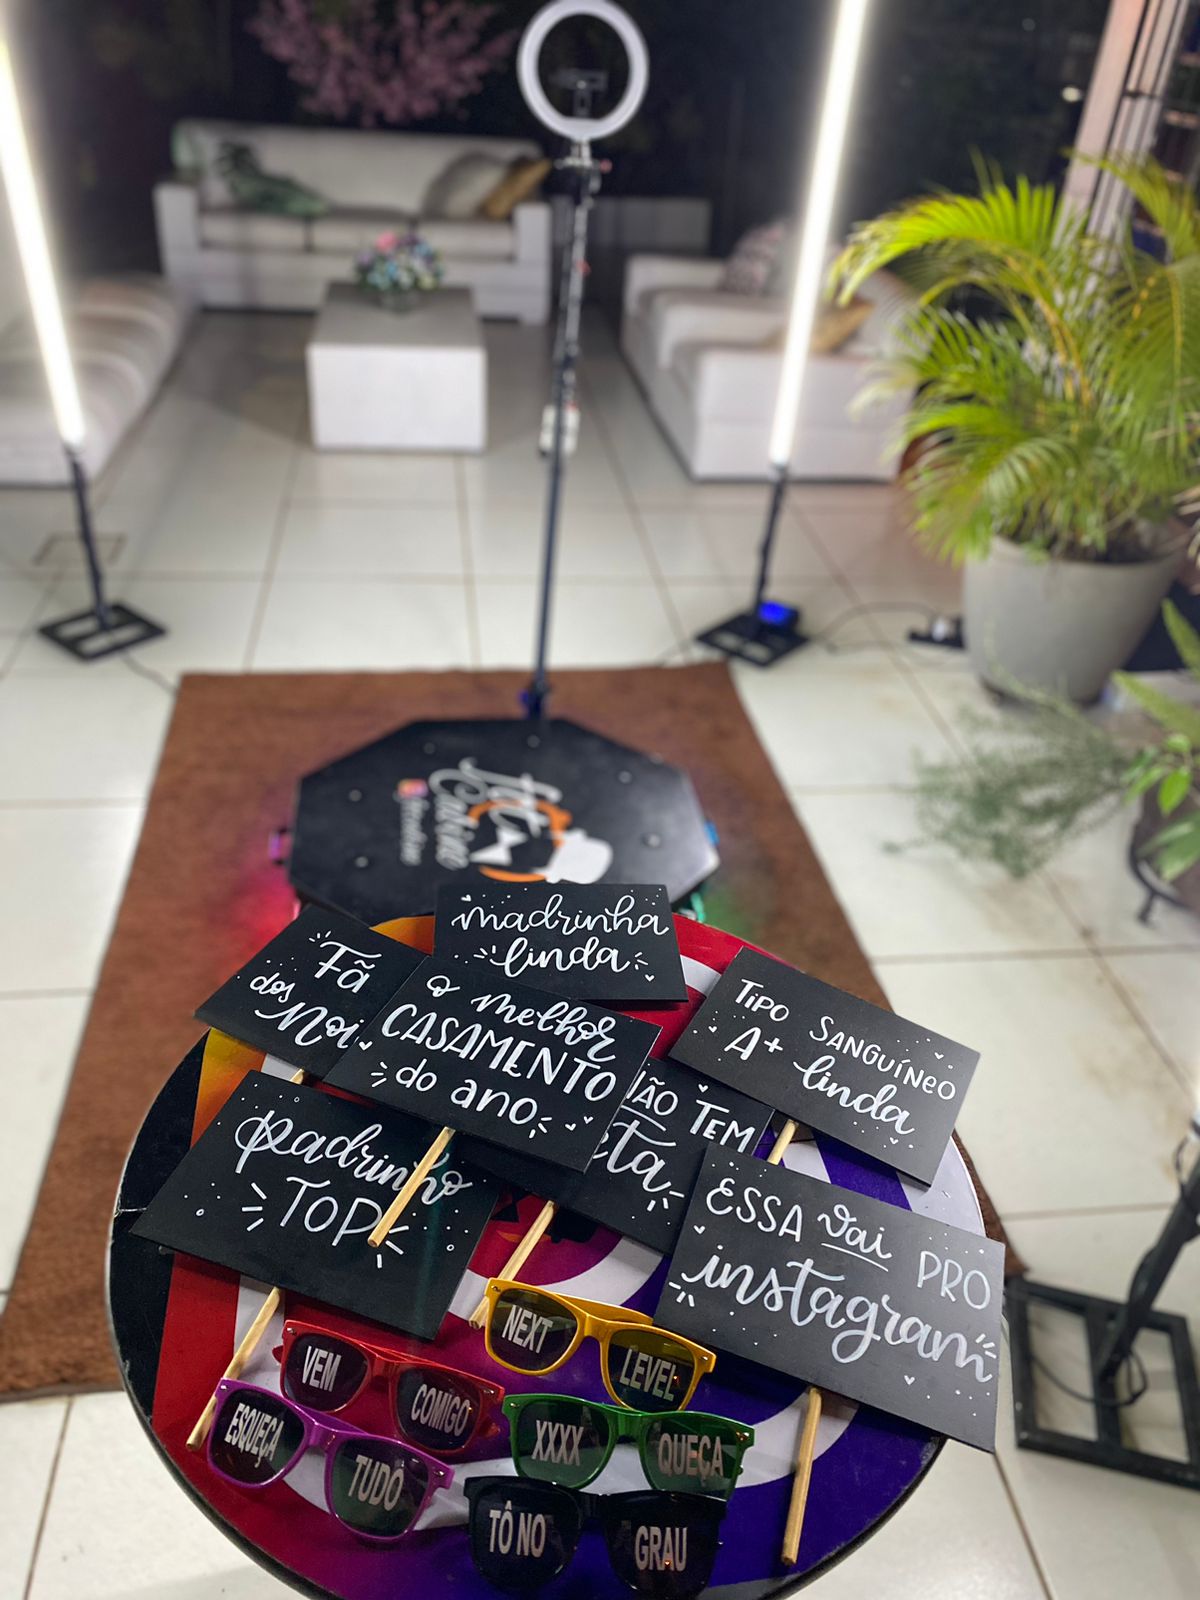 Fot
Cabine
madrinha
linda
Fã
dos
o melhor
CASAMENTO
do ano
TIPO SANGUÍNEO
A+ linda
TEM
Padrinho
TOP
ESSA vai PRO
instagram
NEXT LEVEL
VEM COMIGO
ESQUEÇA TUDO
XXXX QUEÇA
TÔ NO GRAU